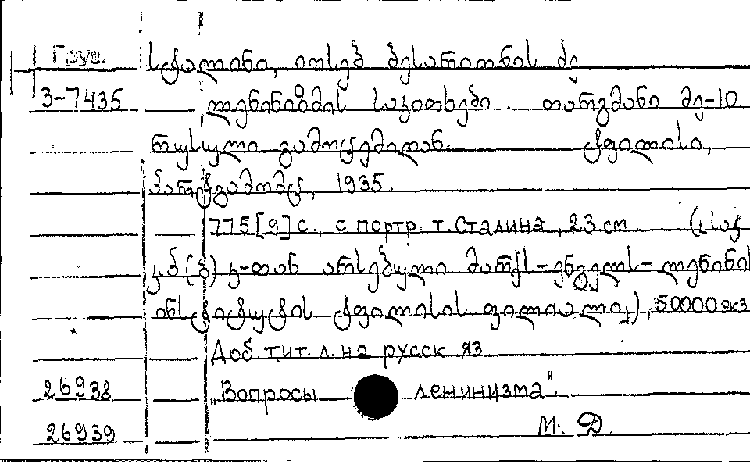 Груз. სტალინი, იოსებ ბესარიონის ძე
3-7435 ლენინიზმის საკითხები. თარგმანი მე-10
რუსული გამოცემიდან. ტფილისი,
პარტგამომც., 1935.
775[9]с., с портр. т. Сталина, 23 см (საქ
კ.პ(ბ) ც-თან არსებული მარქს-ენგელს-ლენინის
ინსტიტუტის ტფილისის ფილიალი), 50000 экз
Доб. тит. л. на русск яз
26938 „Вопросы ленинизма"
26939 М. Д.